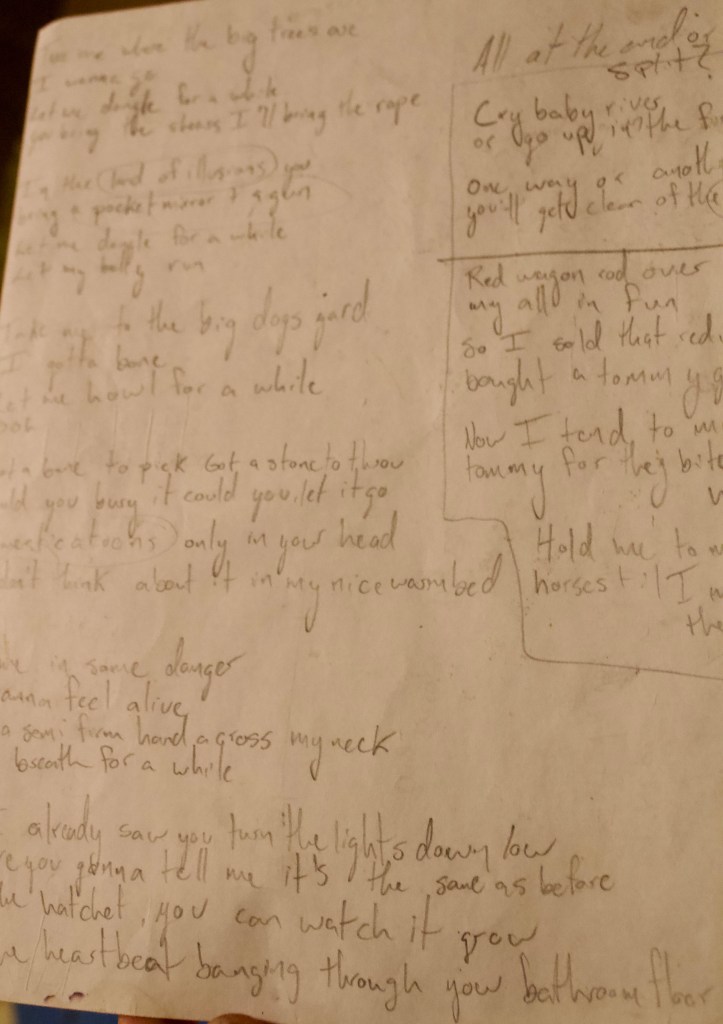 me where the big trees are
I wanna go
Let me dangle for a while
you bring the I'll bring the rope
In the land of illusions you
bring a pocket mirror + a gun
Let me dangle for a while
Let my belly run
Take me to the big dogs yard
I gotta bone
Let me howl for a while
ooh
a bone to pick Got a stone to throw
you bury it could you let it go
only in your head
don't think about it in my nice warm bed
me in some danger
wanna feel alive
a semi firm hand across my neck
breath for a while
I already saw you turn the lights down low
are you gonna tell me it's the same as before
the hatchet, you can watch it grow
the heartbeat banging through your bathroom floor
All at the end or
split?
Cry baby river
or go up in the
One way or
you'll get clear of the
Red wagon rod over
my all in fun
so I sold that red
bought a tommy g
Now I tend to
tommy for they bite
Hold me to
horses til I
the